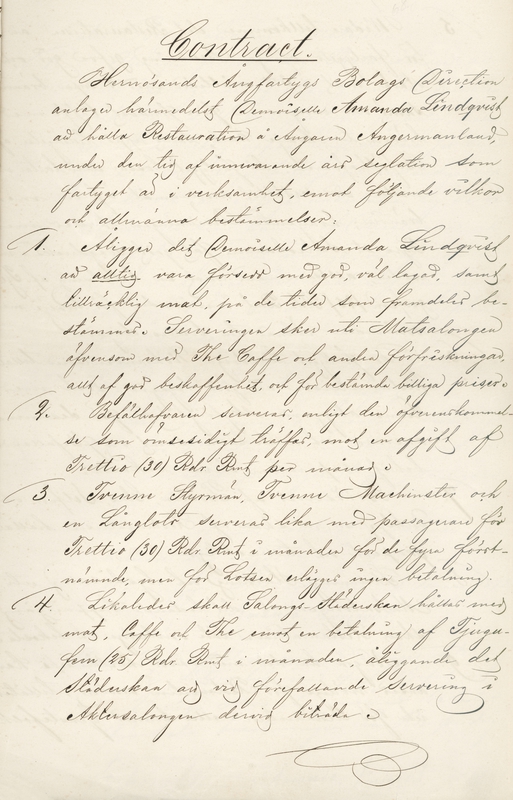 Contract.
Hernösands Ångfartygs Bolags Direction
antager härmedelst Demoiselle Amanda Lindqvist
att hålla Restauration å Ångaren Ångermanland,
under den tid af innevarande års seglation som
fartyget är i verksamhet, emot följande vilkor
och allmänna bestämmelser:
1. Åligger det Demoiselle Amanda Lindqvist
att alltid vara försedd med god, väl lagad, samt
tillräcklig mat, på de tider som framdeles be-
stämmes. Serveringen sker uti Matsalongen
äfvensom med The Caffe och andra förfriskningar,
allt af god beskaffenhet, och för bestämda billiga priser.
2. Befälhafvaren serveras, enligt den öfverenskommel-
se som ömsesidigt träffas, mot en afgift af
Trettio (30) Rdr Rmt per månad.
3. Tvenne Styrmän, Tvenne Machinster och
en Långlots serveras lika med passagerare för
Trettio (30) Rdr Rmt i månaden för de fyra först-
nämnde, men för Lotsen erlägges ingen betalning.
4. Likaledes skall Salongs-Städerskan hållas med
mat, Caffe och The emot en betalning af Tjugu-
fem (25) Rdr Rmt i månaden, åliggande det
Städerskan att vid förefallande servering i
Aktersalongen dervid biträda.